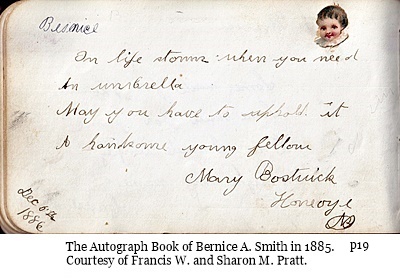 Bernice
In life storms when you need
An umbrella
May you have to uphold it
A handsome young fellow
Mary Bostwick
Honeoye
Dec 6th
1886
The Autograph Book of Bernice A. Smith in 1885. p19
Courtesy of Francis W. and Sharon M. Pratt.